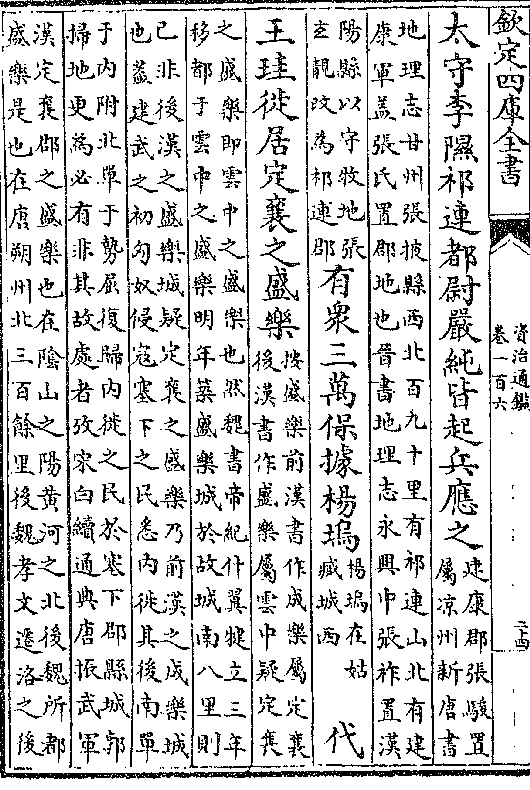 欽定四庫全書
資治通鑑
卷一百六
二四
太守李隰祁連都尉嚴純皆起兵應之
建康郡張駿置
屬凉州新唐書
地理志甘州張掖縣西北百九十里有祁連山北有建
康軍盖張氏置郡地也晉書地理志永興中張祚置漢
陽縣以守牧地張
玄靚改為祁連郡
有衆三萬保據楊塢
楊塢在姑
臧城西
代
王珪徙居定襄之盛樂
按盛樂前漢書作成樂屬定襄
後漢書作盛樂屬雲中疑定襄
之盛樂即雲中之盛樂也然魏書帝紀什翼犍立三年
移都于雲中之盛樂明年築盛樂城於故城南八里則
已非後漢之盛樂城疑定襄之盛樂乃前漢之成樂城
也葢建武之初匈奴侵寇塞下之民悉内徙其後南單
于内附北單于勢屈復歸内徙之民於塞下郡縣城郭
掃地更為必有非其故處者攷宋白續通典唐振武軍
漢定襄郡之盛樂也在隂山之陽黄河之北後魏所都
盛樂是也在唐朔州北三百餘里後魏孝文遷洛之後